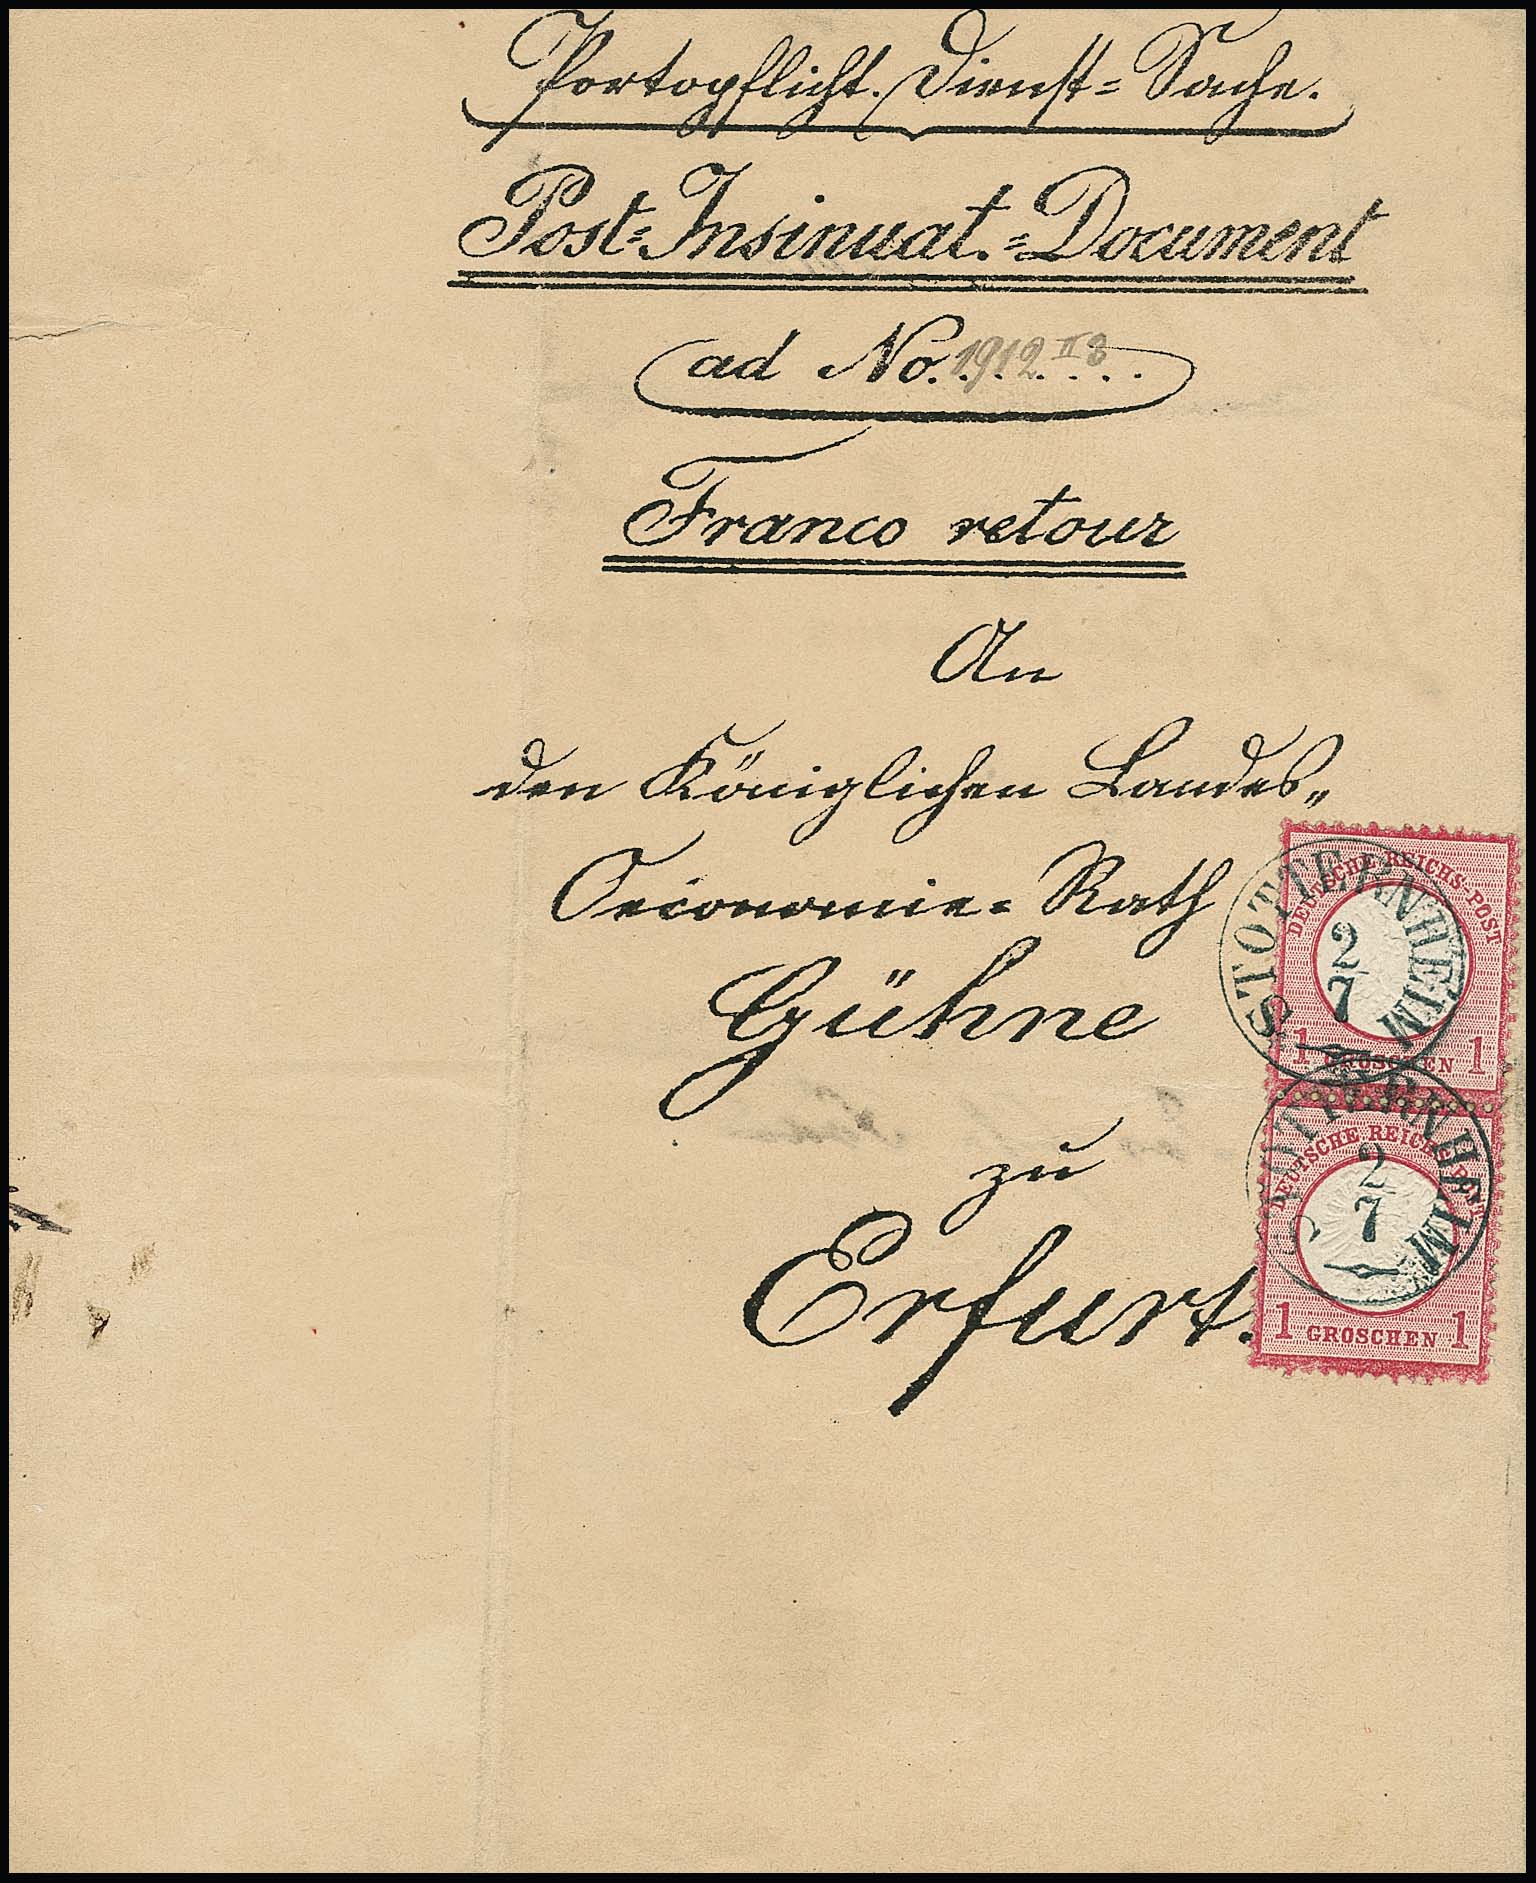 Portopflicht. Dienst=Sache.
Post=Insinuat.=Document
ad No. 1912 II 8
Franco retour
An
den Königlichen Landes„
Oeconomie=Rath
Gühne
zu
Erfurt.
STOTTERNHEIM
2
7
DEUTSCHE REICHS-POST
1 GROSCHEN 1
STOTTERNHEIM
2
7
DEUTSCHE REICHS-POST
1 GROSCHEN 1